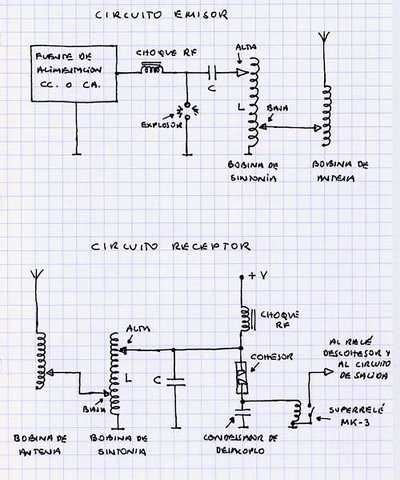 CIRCUITO EMISOR
FUENTE DE
ALIMENTACIÓN
CC. O CA.
CHOQUE RF
ALTA
C
EXPLOSOR
L
BAJA
BOBINA DE
SINTONÍA
BOBINA DE
ANTENA
CIRCUITO RECEPTOR
+V
CHOQUE
RF
ALTA
AL RELÉ
DESCOHESOR Y
AL CIRCUITO
DE SALIDA
COHESOR
L
C
BAJA
SUPERRELÉ
MK-3
BOBINA DE
ANTENA
BOBINA DE
SINTONIA
CONDENSADOR DE
DESACOPLO